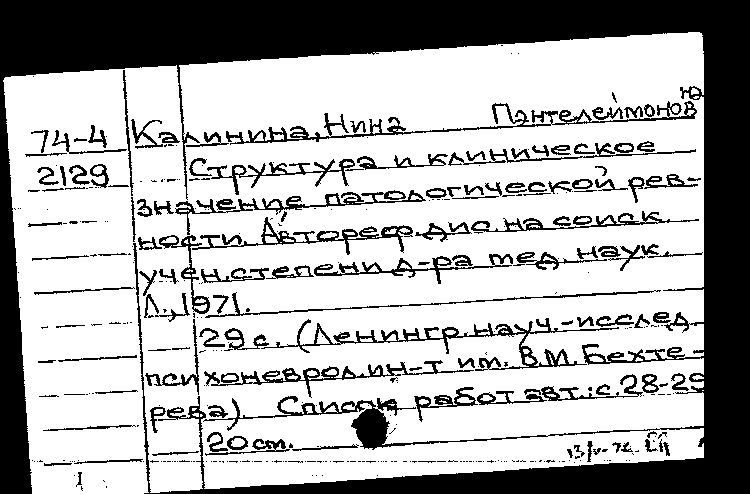 74-4 Калинина, Нина Пантелеймоновна
2129 Структура и клиническое
значение патологической рев-
ности. Автореф. дис. на соиск.
учен. степени д-ра мед. наук.
Л., 1971.
29 с. (Ленингр. науч.-исслед.
психоневрол. ин-т им. В.М. Бехте-
рева). Список работ авт.: с. 28-29
20 см.
1